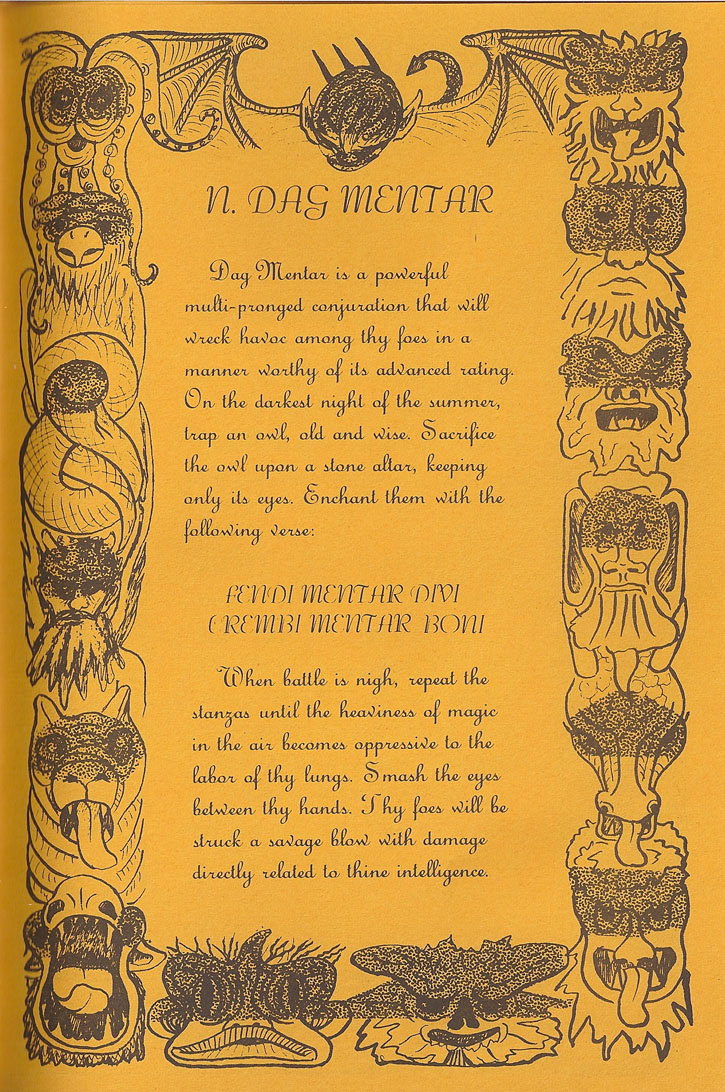 N. DAG MENTAR
Dag Mentar is a powerful
multi-pronged conjuration that will
wreck havoc among thy foes in a
manner worthy of its advanced rating.
On the darkest night of the summer,
trap an owl, old and wise. Sacrifice
the owl upon a stone altar, keeping
only its eyes. Enchant them with the
following verse:
FENDI MENTAR DIVI
CREMBI MENTAR BONI
When battle is nigh, repeat the
stanzas until the heaviness of magic
in the air becomes oppressive to the
labor of thy lungs. Smash the eyes
between thy hands. Thy foes will be
struck a savage blow with damage
directly related to thine intelligence.